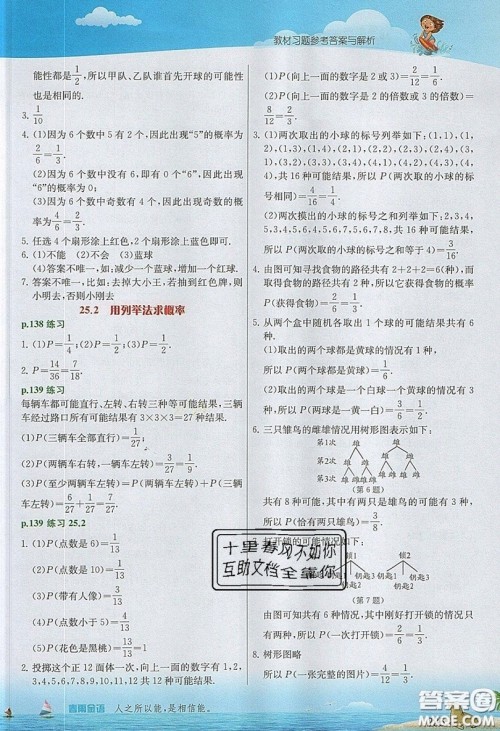 教材习题参考答案与解析
能性都是1/2,所以甲队、乙队谁首先开球的可能性
也是相同的.
3. 1/10
4. (1)因为 6 个数中 5 有 2 个,因此出现“5”的概率为
2/6=1/3.
(2)因为 6 个数中没有 6,即有 0 个“6”,因此出现
“6”的概率为 0.
(3)因为 6 个数中奇数有 4 个,因此出现奇数的概
率为4/6=2/3.
5. 任选 4 个扇形涂上红色,2 个扇形涂上蓝色即可.
6. (1)不能 (2)不会 (3)蓝球
(4)答案不唯一,如:减少一个蓝球,或增加一个红球.
7. 答案不唯一,比如:去掉大小王,若抽到红色牌,则
小明去,否则小刚去
25.2 用列举法求概率
p.138 练习
1. (1)P=1/4; (2)P=1/2; (3)P=1/2.
2. P=14/36=7/18.
p.139 练习
每辆车都可能直行、左转、右转三种等可能结果,三辆
车经过路口所有可能结果有 3×3×3=27 种结果.
(1)P(三辆车全部直行)=1/27;
(2)P(两辆车右转,一辆车左转)=3/27=1/9;
(3)P(至少两辆车左转)=6/27+1/27=7/27.
p.139 练习 25.2
1. (1)P(点数是 6)=1/13
(2)P(点数是 10)=1/13
(3)P(带有人像)=3/13
(4)P(点数小于 5)=4/13
(5)P(花色是黑桃)=13/13=1
2. 投掷这个正 12 面体一次,向上一面的数字有 1,2,
3,4,5,6,7,8,9,10,11,12 共 12 种等可能的结果.
(1)P(向上一面的数字是 2 或 3)=2/12=1/6.
(2)P(向上一面的数字是 2 的倍数或 3 的倍数)=
8/12=2/3.
3. (1)两次取出的小球的标号列举如下:(1,1),(1,
2),(1,3),(1,4),(2,1),(2,2),(2,3),(2,4),(3,
1),(3,2),(3,3),(3,4),(4,1),(4,2),(4,3),(4,4),
共有 16 种可能结果.所以 P(两次取出的小球的
标号相同)=4/16=1/4.
(2)两次摸出的小球的标号之和列举如下:2,3,4,
5,3,4,5,6,4,5,6,7,5,6,7,8,共 16 种可能结果.
所以 P(两次取出的小球的标号之和等于 4)=3/16.
4. 由图可知寻找食物的路径共有 2+2+2=6(种),
而获得食物的路径共有 2 种,所以它获得食物的概
率 P(获得食物)=2/6=1/3.
5. 从两个盒中随机各取出一个球共有 6 种可能,
(1)取出的两个球都是黄球的情况有 1 种,
所以 P(两个球都是黄球)=1/6.
(2)取出的两个球是一白一黄的情况有 3 种,
所以 P(两球是一黄一白)=3/6=1/2.
6. 三只雏鸟的雌雄情况用树形图表示如下:
第1次
第2次
第3次
(第 6 题)
共有 8 种可能,其中恰有两只是雄鸟的可能有
3 种,所以 P(恰有两只雄鸟)=3/8.
(第 7 题)
由图可知共有 6 种情况,其中刚好打开锁的情况有
8. 树形图略
所以 P(一张完整的图片)=4/12=1/3
十里春风不如你
互助文档全靠你
人之所以能,是相信能。
答案圈
MXQE.COM